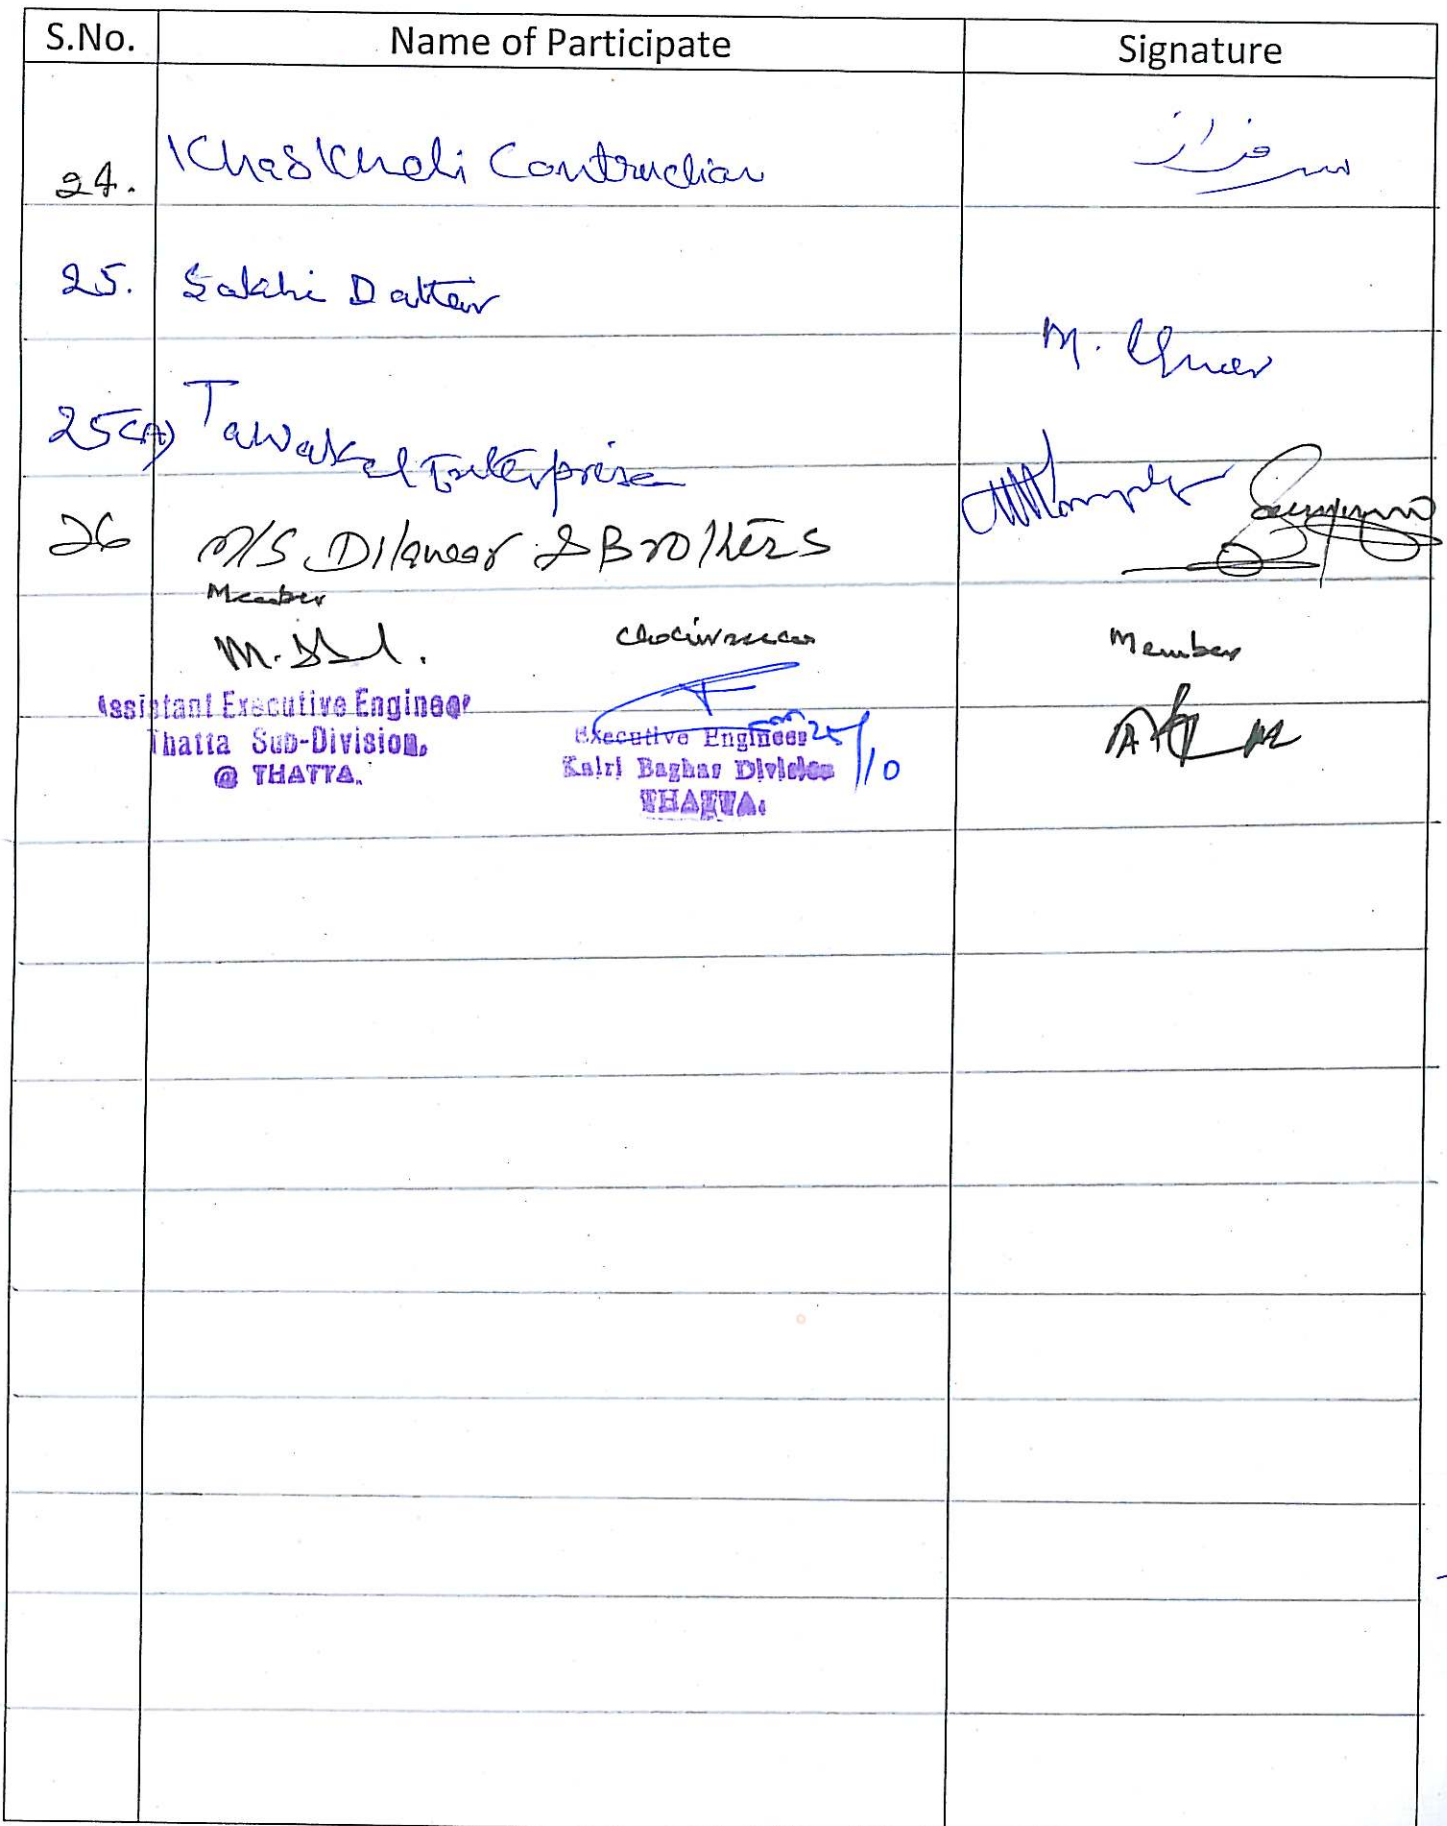 S.No. Name of Participate Signature
24. Khaskheli Contruction سرفراز
25. Sakhi Dattar
M.
25(A) Tawakal Enterprise
26 M/S Dilawar & Brothers
Member Chairman Member
Assistant Executive Engineer
Thatta Sub-Division,
@ THATTA.
Executive Engineer 25/10
Kalri Baghar Division
THATTA.